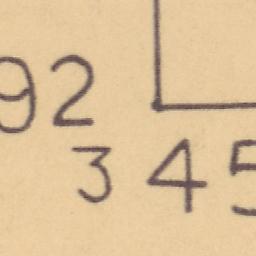 92
3 45